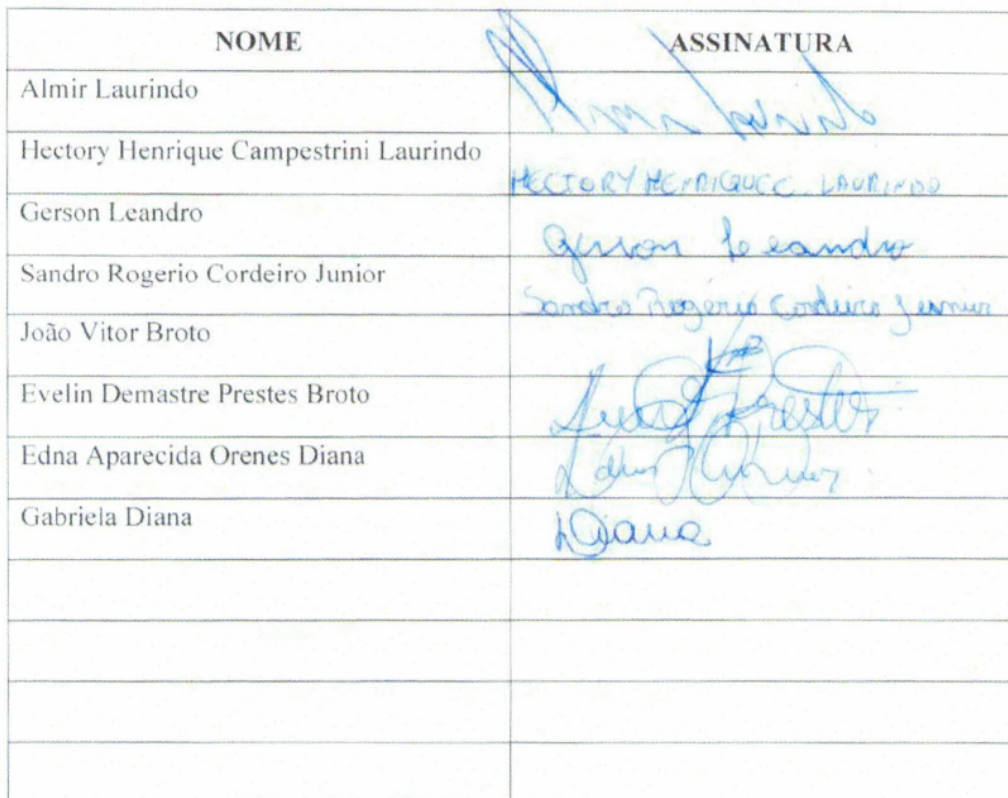 NOME ASSINATURA
Almir Laurindo
Hectory Henrique Campestrini Laurindo HECTORY HENRIQUE C. LAURINDO
Gerson Leandro Gerson Leandro
Sandro Rogerio Cordeiro Junior Sandro Rogério Cordeiro Junior
João Vitor Broto
Evelin Demastre Prestes Broto Prestes
Edna Aparecida Orenes Diana
Gabriela Diana Diana